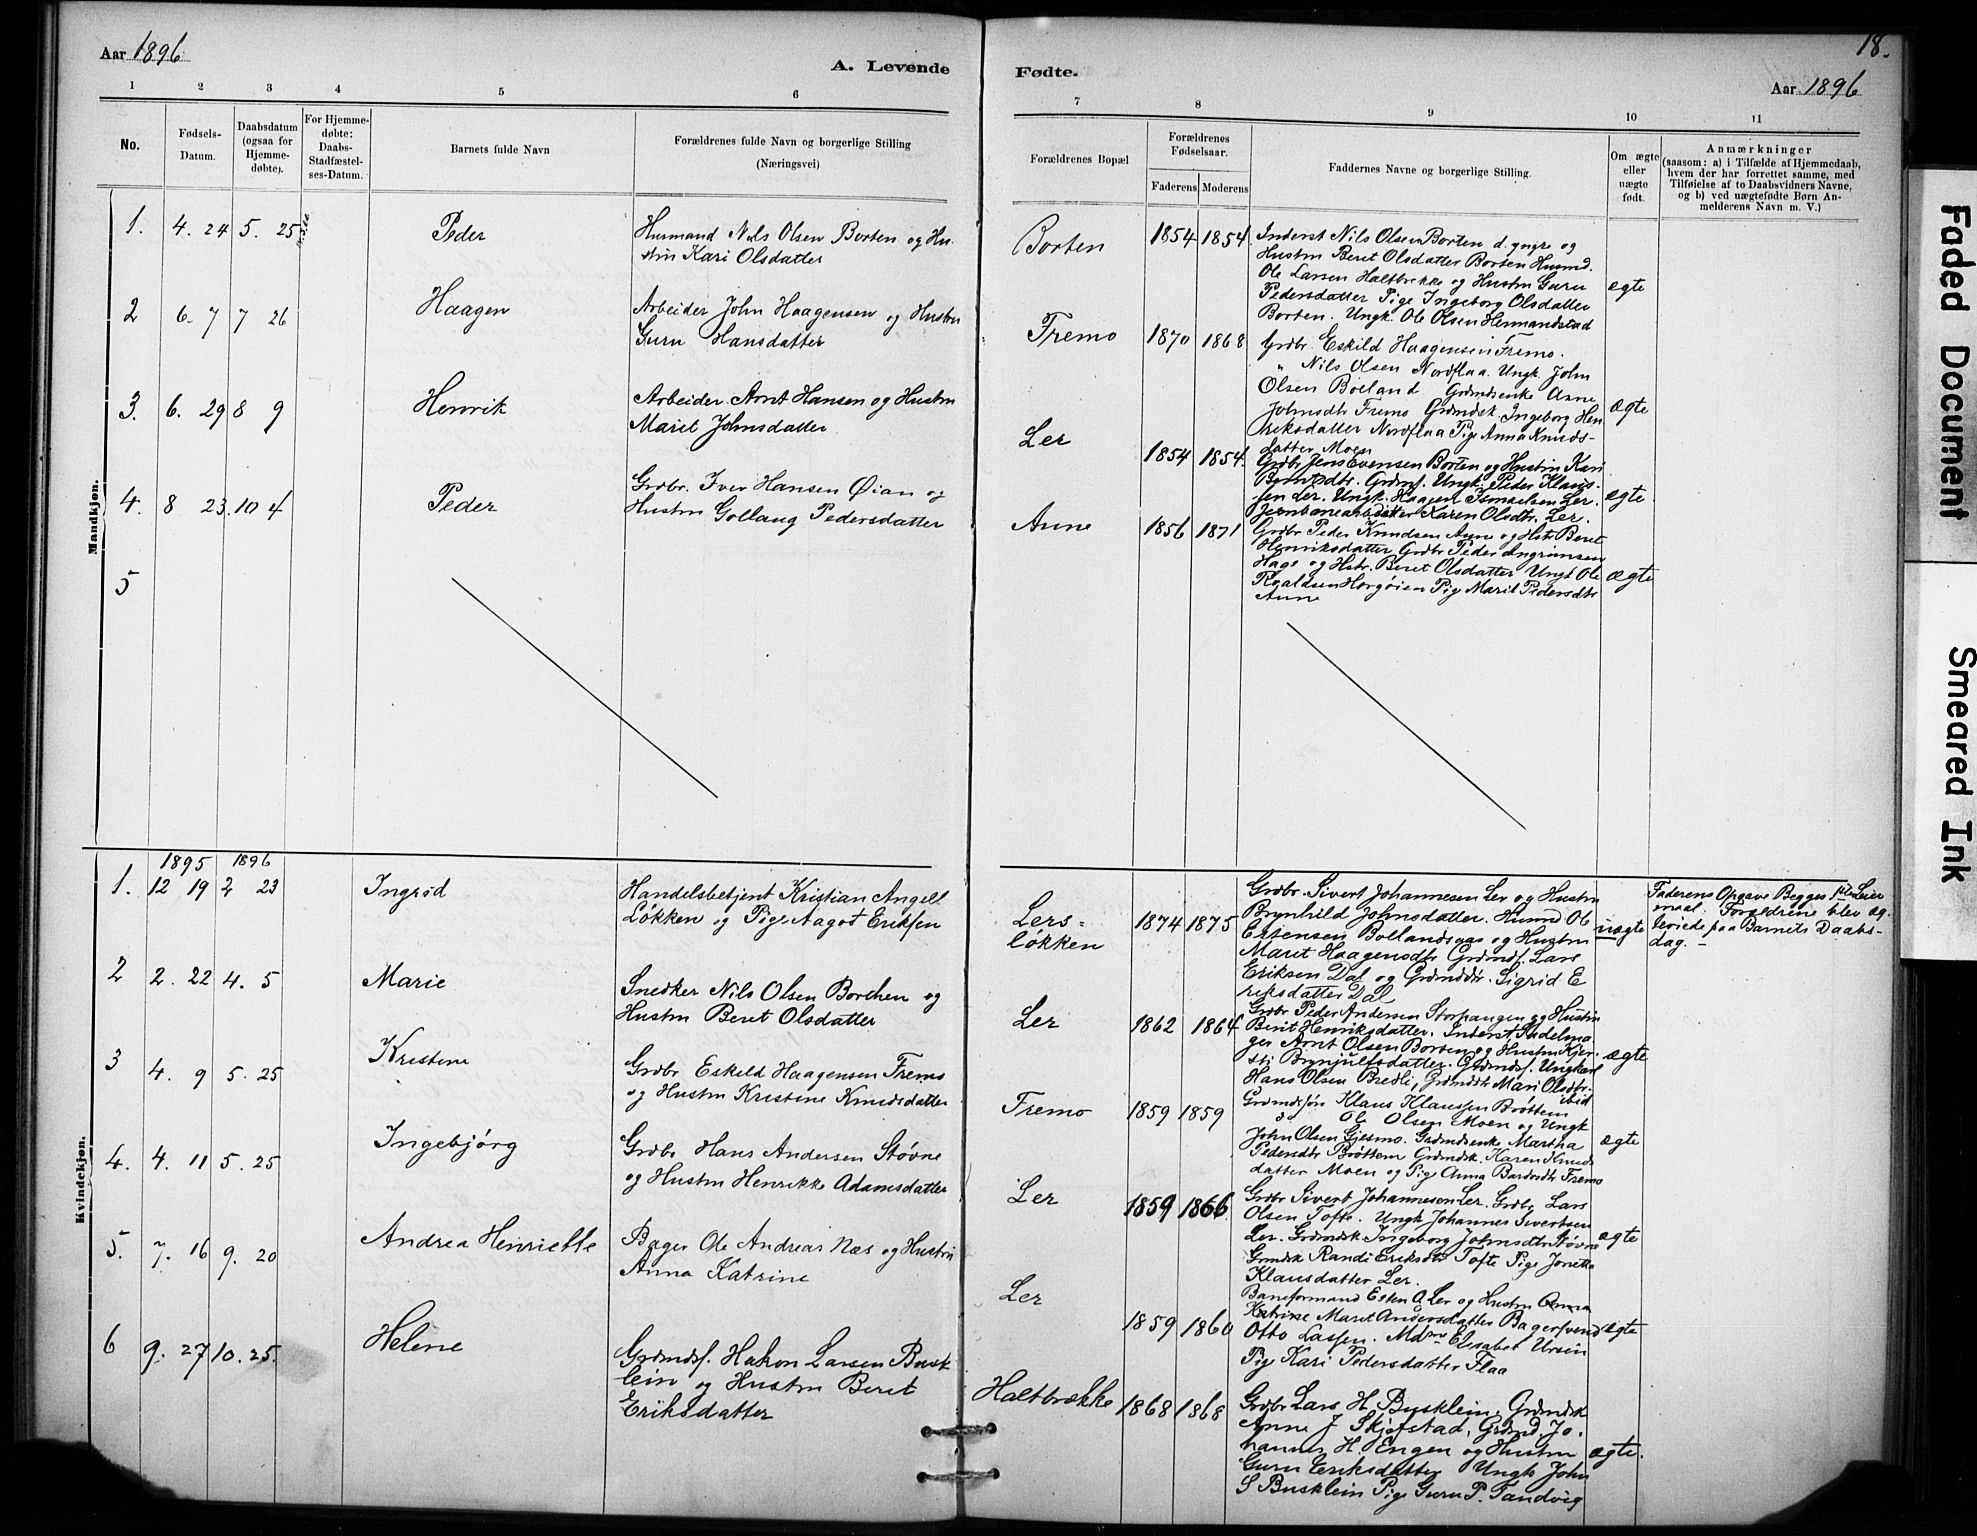 Aar 1896
A. Levende
1 2 3 4 5 6
No.
Fødsels-
Datum.
Daabsdatum
(ogsaa for
Hjemme-
døbte).
For Hjemme-
døbte:
Daabs-
Stadfæstel-
ses-Datum.
Barnets fulde Navn
Forældrenes fulde Navn og borgerlige Stilling
(Næringsvei)
Mandkjøn.
1. 4. 24 5. 25 Peder
Husmand Nils Olsen Borten og Hu-
strn Kari Olsdatter
2 6. 7 7 26 Haagen
Arbeider John Haagensen og Hustru
Guru Hansdatter
3. 6. 29 8 9 Henrik
Arbeider Arnt Hansen og Hustru
Marit Johnsdatter
4. 8 23. 10 4 Peder
Grdbr. Iver Hansen Øian og
Hustru Gollaug Pedersdatter
5
Kvindekjøn.
1895 1896
1. 12 19 2 23 Ingrid
Handelsbetjent Kristian Angell
Løkken og Pige Aagot Eriksen
2 2. 22 4. 5 Marie
Snedker Nils Olsen Borchen og
Hustru Beret Olsdatter
3 4. 9 5. 25 Kristine
Grdbr Eskild Haagensen Fremo
og Hustru Kristine Knudsdatter
4. 4. 11 5. 25 Ingebjørg
Grdbr Hans Andersen Støvne
og Hustru Henrikke Adamsdatter
5. 7. 16 9. 20 Andrea Henriette
Bager Ole Andreas Næs og Hustru
Anna Katrine
6 9. 27 10. 25. Helene
Grdmdsf. Hakon Larsen Busk
lein og Hustru Beret
Eriksdatter
18.
Fødte.
Aar 1896
7 8 9 10 11
Forældrenes Bopæl
Forældrenes
Fødselsaar.
Faderens Moderens
Faddernes Navne og borgerlige Stilling.
Om ægte
eller
uægte
født.
Anmærkninger
(saasom: a) i Tilfælde af Hjemmedaab,
hvem der har forrettet samme, med
Tilføielse af to Daabsvidners Navne,
og b) ved uægtefødte Børn An-
melderens Navn m. V.)
Borten 1854 1854
Inderst Nils Olsen Borten d. yngre og
Hustru Beret Olsdatter Borten Husmd.
Ole Larsen Haltbrekke og Hustru Guru
Pedersdatter Pige Ingeborg Olsdatter
Borten. Ungk. Ole Olsen Hermandstad
ægte
Fremo 1870 1868
Grdbr. Eskild Haagensen Fremo.
" Nils Olsen Nordflaa. Ungk. John
Olsen Bolland Grdmdsenke Anne
Johnsdtr Fremo Grdmdsk. Ingeborg Hen
riksdatter Nordflaa Pige Anna Knuds-
datter Moen
ægte
Ler 1854 1854
Grdbr Jens Evensen Borten og Hustru Kari
Berntsdtr. Grdmdsf. Ungk. Peder Klaus-
sen Ler. Ungk. Haagen Ismaelsen Ler.
Jernbanearbeider Karen Olsdtr. Ler.
ægte
Aune 1856 1871
Grdbr Peder Knudsen Aune og Hstr. Beret
Henriksdatter Grdbr Peder Angrimsen
Hage og Hstr. Beret Olsdatter Ungk Ole
Roaldsen Horgøien Pige Marit Pedersdtr
Aune
ægte
Lers-
løkken 1874 1875
Grdbr. Sivert Johannesen Ler og Hustru
Brynhild Johnsdatter. Husmd Ole
Estensen Bollandsaas og Hustru
Maret Haagensdtr Grdmdsf. Lars
Eriksen Dal og Grdmddtr. Sigrid E
riksdatter Dal
uægte
Faderens Opgave Begges 1ste Leier
maal. Forældrene blev æg-
teviede paa Barnets Daabs-
dag. -
Ler 1862 1864
Grdbr Peder Andersen Storhaugen og Hustru
Berit Henriksdatter. Inderst, Sadelma
ger Arnt Olsen Borten og Hustru Kjer-
sti Brynjulfsdatter. Grdmdsf. Ungkarl
Hans Olsen Bredli, Grdmddtr Mari Olsdtr.
ibid
ægte
Fremo 1859 1859
Grdmdssøn Klaus Klaussen Brøttem
do Ole Olsen Moen og Ungk
John Olsen Gjesmo. Grdmdsenke Martha
Pedersdtr Brøttem Grdmdsk. Karen Knuds
datter Moen og Pige Anna Bardosdtr Fremo
ægte
Ler 1859 1866
Grdbr Sivert Johannesen Ler. Grdbr Lars
Olsen Tofte. Ungk Johannes Sivertsen
Ler. Grdmdsk Ingeborg Johnsdtr Støvne
Grmdsk Randi Eriksdtr Tofte Pige Jonetta
Klausdatter Ler.
ægte
Ler 1859 1860
Baneformand Esten O. Ler og Hustru Anna
Katrine Maret Andersdatter Bagersvend
Otto Lassen. Mdme Elisabet Ursin
Pige Kari Pedersdatter Flaa
ægte
Haltbrække 1868 1868
Grdbr Lars H. Busklein, Grdmdsk
Anne J Skjefstad, Grdmd. Jo-
hannes H. Engen og Hustru
Guru Eriksdatter Ungk John
S Busklein Pige Guru P. Sandvig
ægte.
Faded Document
Smeared Ink